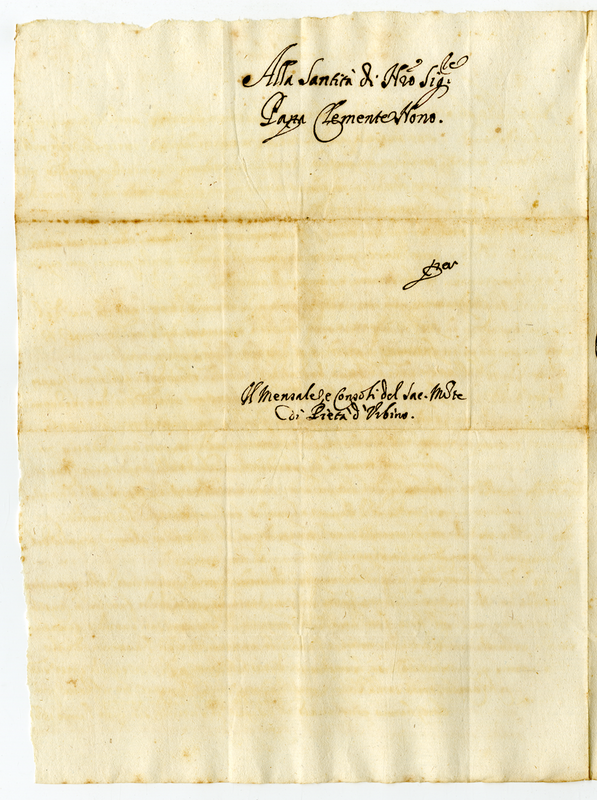 Alla Santità di Nro Sigre
Papa Clemente Nono.
Per
Il Mensale, e Consoli del Sac. Mote
di Pietà d'Urbino.